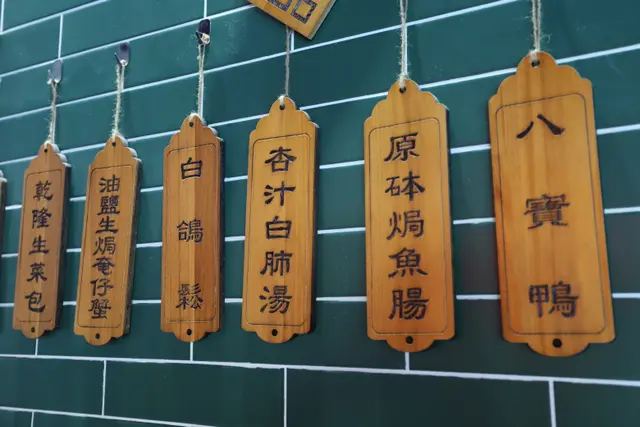 乾隆生菜包
油鹽生焗奄仔蟹
白鴿鬆
杏汁白肺湯
原砵焗魚腸
八寶鴨